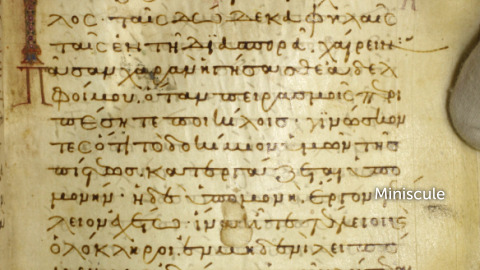 λος· ταῖς δώδεκα φυλαῖς
ταῖς ἐν τῇ διασπορᾷ· χαίρειν·
Πᾶσαν χαρὰν ἡγήσασθε ἀδελ
φοί μου, ὅταν πειρασμοῖς περι
πέσητε ποικίλοις· γινώσκον
τες ὅτι τὸ δοκίμιον ὑμῶν τῆς
πίστεως κατεργάζεται ὑπο
μονήν· ἡ δὲ ὑπομονὴ ἔργον
Miniscule
λειον ἐχέτω· ἵνα ἦτε τέλειοι
ὁλόκληροι· ἐν μηδενὶ λειπό